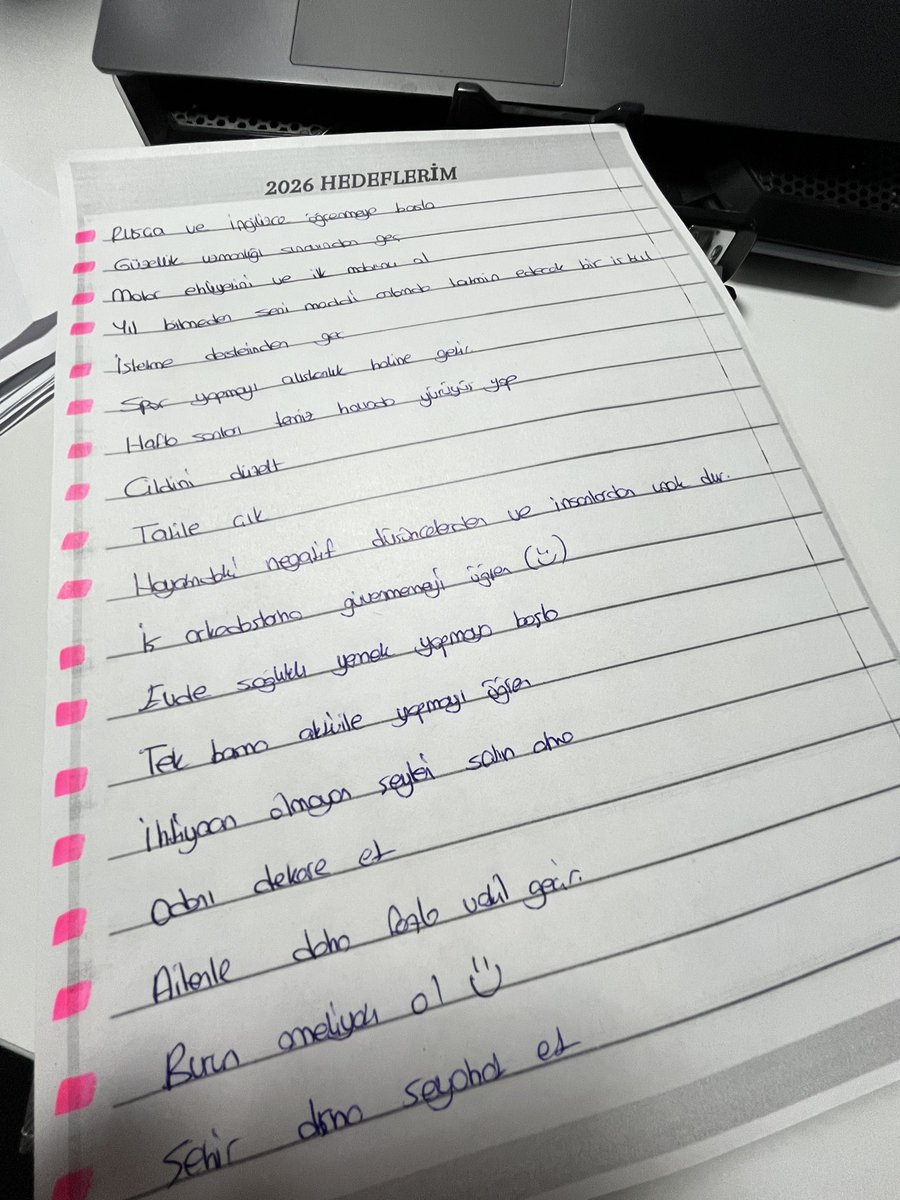 2026 HEDEFLERİM
Rusca ve ingilizce öğrenmeye basla
Güzellik uzmanlığı sınavından geç
Motor ehliyetini ve ilk motorunu al
Yıl bitmeden seni maddi anlamda tatmin edecek bir is bul
İsletme derslerinden gec
Spor yapmayı alıskanlık haline getir.
Hafta sonları temiz havada yürüyüs yap
Cildini düzelt
Tatile cık
Hayatındaki negatif düsüncelerden ve insanlardan uzak dur.
İs arkadaslarına güvenmemeyi öğren (🙂)
Evde sağlıklı yemek yapmaya basla
Tek basına aktivite yapmayı öğren
İhtiyacın olmayan seyleri satın alma
Odanı dekore et
Ailenle daha fazla vakit gecir.
Burun ameliyatı ol 🙂
Sehir dısına seyahat et